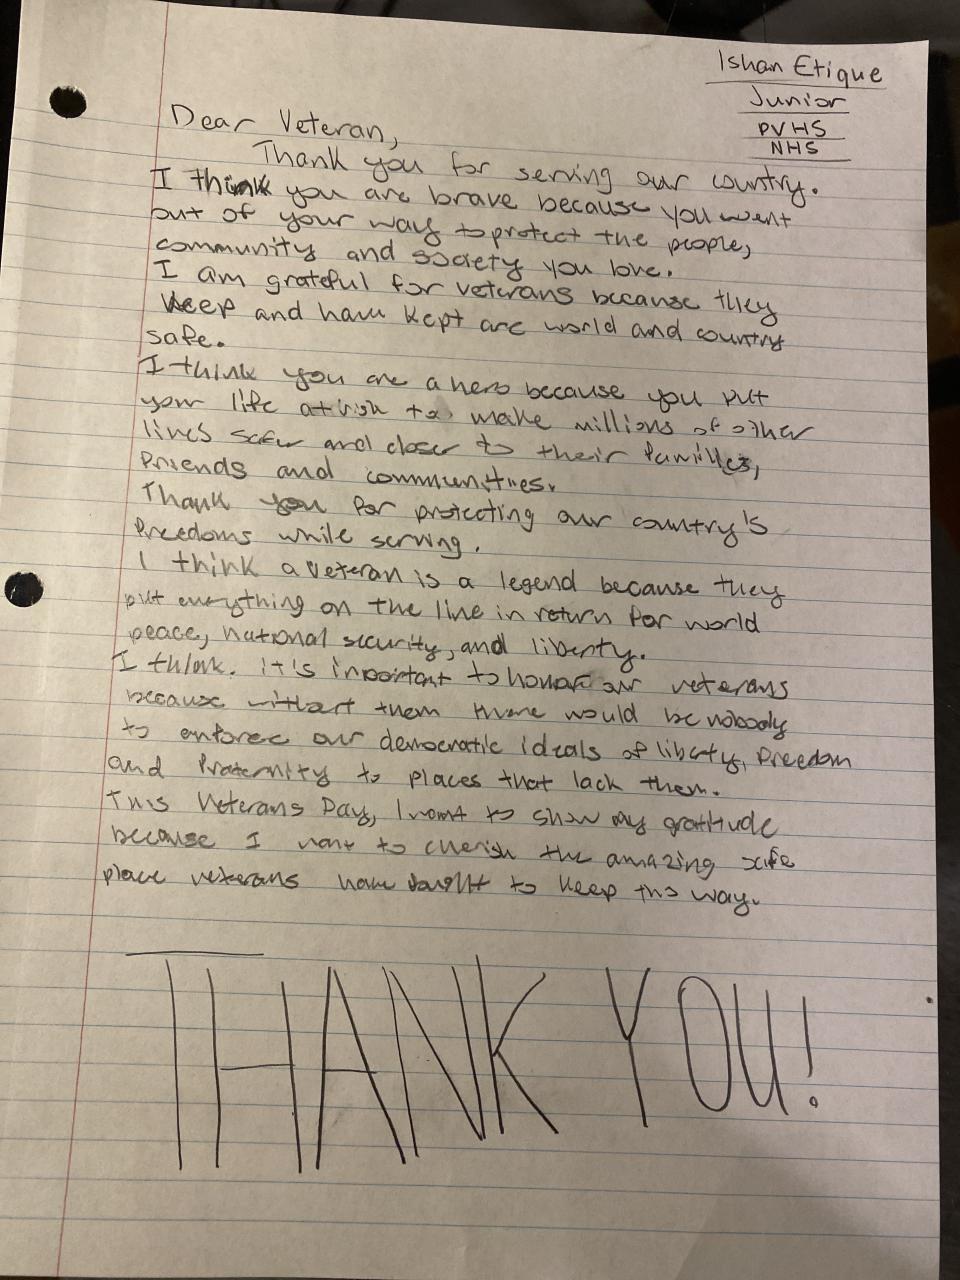 Ishan Etique
Junior
PVHS
NHS
Dear Veteran,
Thank you for serving our country.
I think you are brave because you went
out of your way to protect the people,
community and society you love.
I am grateful for veterans because they
keep and have kept are world and country
safe.
I think you are a hero because you put
your life at risk to make millions of other
lives safer and closer to their families,
friends and communities.
Thank you for protecting our country's
freedoms while serving.
I think a veteran is a legend because they
put everything on the line in return for world
peace, national security, and liberty.
I think. it is important to honor our veterans
because without them there would be nobody
to enforce our democratic ideals of liberty, freedom
and fraternity to places that lack them.
This Veterans Day, I want to show my gratitude
because I want to cherish the amazing safe
place veterans have fought to keep this way.
THANK YOU!